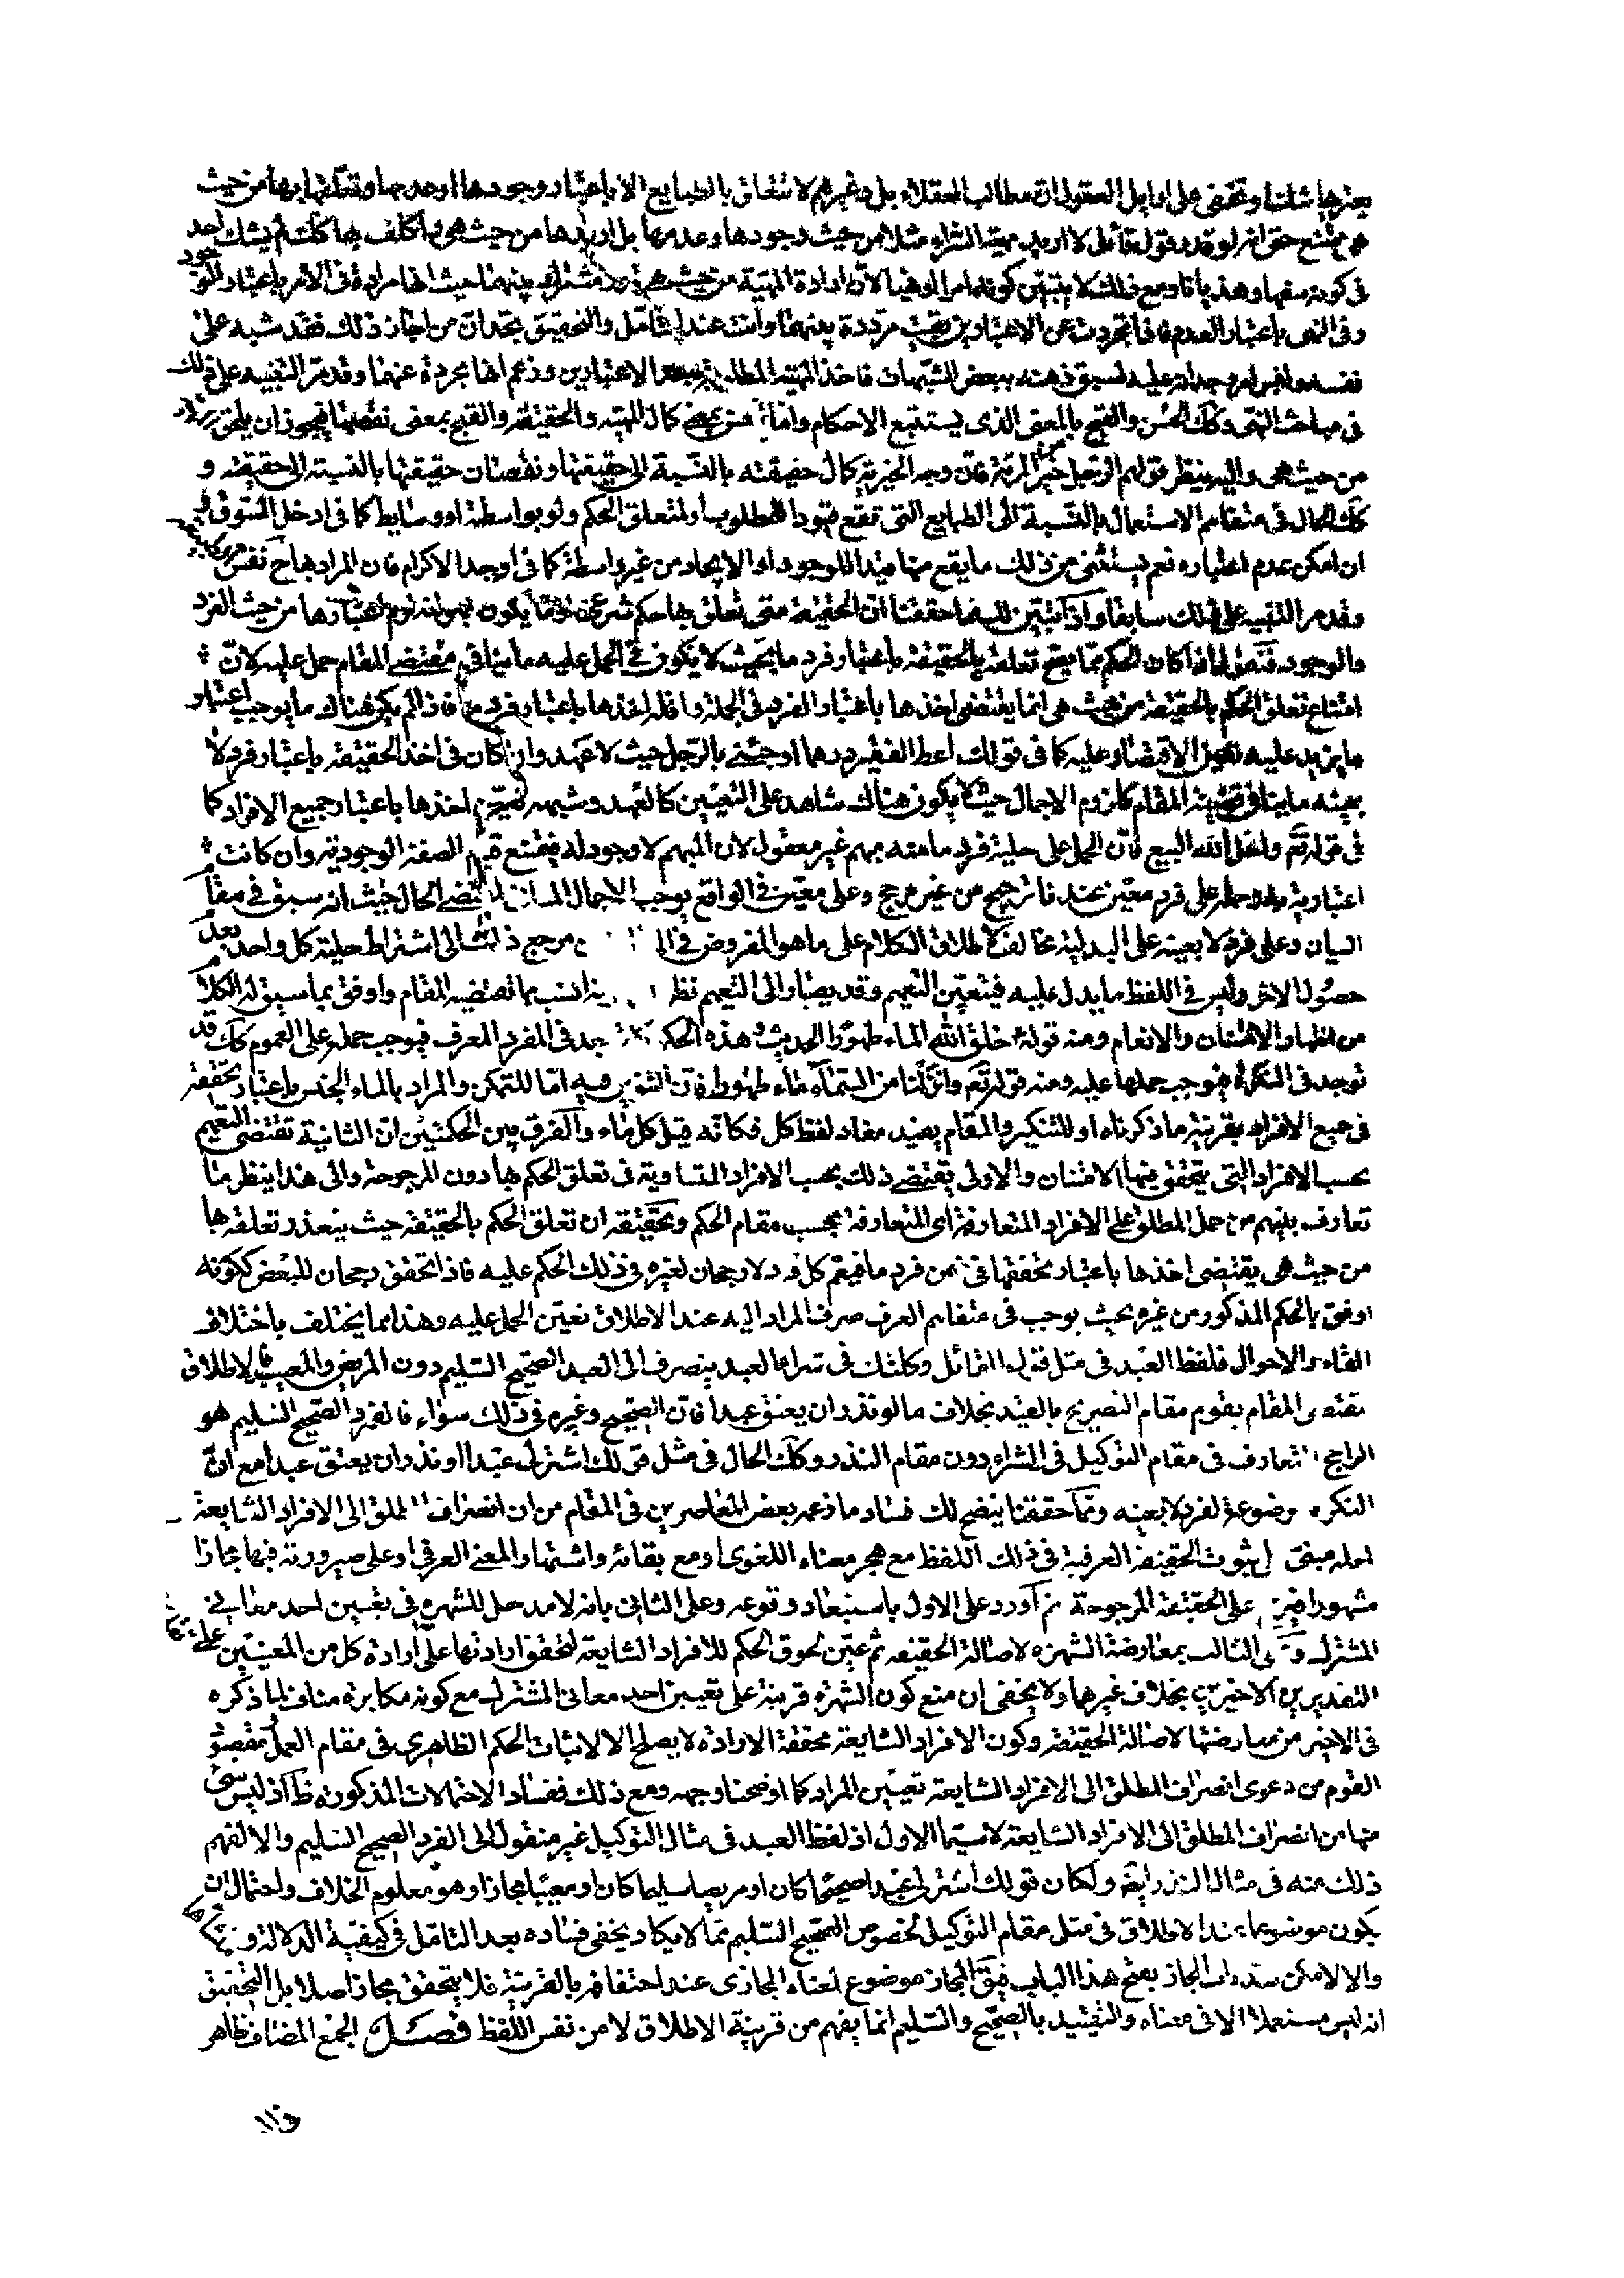 يعتريها شك او تخفى على اوايل العقول ان مطالب العقلاء بل وغيرهم لا تتعلق بالطبايع الا باعتبار وجودها او عدمها وتعلقها بها من حيث
هى ممتنع حتى انه لو قدر وقول قائل لا اريد مهية الشراء مثلا من حيث وجودها وعدمها بل اريدها من حيث هى بما كلف بها كك لم يشك احد
فى كونه سفها وهذيانا ومع ذلك لا يتبين كونه امرا او نهيا لان ارادة المهية من حيث هى مشترك بينهما حيث انها مرادة فى الامر باعتبار الوجود
وفى النهى باعتبار العدم فاذا تجردت عن الاعتبارين بقيت مترددة بينهما وانت عند التامل والتحقيق تجد ان من اجاز ذلك فقد شبه على
نفسه والتبس امر وجدانه عليه لسبق ذهنه ببعض الشبهات فاخذ المهية المطلوبة باحد الاعتبارين وزعم انها مجردة عنهما وقد مر التنبيه على ذلك
فى مباحث النهى وكك الحسن والقبح بالمعنى الذى يستتبع الاحكام واما الحسن بمعنى كمال المهية والحقيقة والقبح بمعنى نقصها فيجوز ان يلحق
من حيث هى واليه ينظر قولهم الرجل خير من المرئة فان وجه الخيرية كمال حقيقته بالنسبة الى حقيقتها ونقصان حقيقتها بالنسبة الى حقيقته و
كك الحال فى متفاهم الاستعمال بالنسبة الى الطبايع التى تقع قيودا للمطلوب او لمتعلق الحكم ولو بواسطة او وسايط كما فى ادخل السوق
ان امكن عدم اعتباره نعم يستثنى من ذلك ما يقع منها قيدا للوجود او الايجاد من غير واسطة كما فى اوجد الاكرام فان المراد بها ح نفس
وقد مر التنبيه على ذلك سابقا واذ قد تبين لك مما حققنا ان الحقيقة متى تعلق بها حكم شرعى اعتبارها من حيث الفرد
والوجود فنقول اذا كان الحكم مما يصح تعلقه بالحقيقة باعتبار فرد ما بحيث لا يكون فى الحمل عليه ما ينافى مقتضى المقام حمل عليه لان
امتناع تعلق الحكم بالحقيقة من حيث هى انما يقتضى اخذها باعتبار الفرد فى الجملة واقله اخذها باعتبار فرد ما فاذا لم يكن هناك ما يوجب اعتبار
ما يزيد عليه تعين الاقتصار عليه كما فى قولك اعط الفقير درهما او جئنى بالرجل حيث لا عهد وان كان فى اخذ الحقيقة باعتبار فرد لا
بعينه ما ينافى قضية المقام كلزوم الاجمال حيث لا يكون هناك شاهد على التعيين كالعهد وشبهه تعين اخذها باعتبار جميع الافراد كما
فى قوله تعالى واحل الله البيع فان الحمل على حلية فرد ما منه مبهم غير معقول لان المبهم لا وجود له فيمتنع قيام الصفة الوجودية وان كانت
اعتبارية به وحمله على فرد معين عندنا ترجيح من غير مرجح وعلى معين فى الواقع يوجب الاجمال المنافى لمقتضى الحال حيث انه سبق فى مقام
البيان وعلى فرد لا بعينه على البدلية مخالف لاطلاق الكلام على ما هو المفروض فى مرجع ذلك الى اشتراط حلية كل واحد بعدم
حصول الاخر وليس فى اللفظ ما يدل عليه فيتعين التعميم وقد يصار الى التعميم نظرا انسب بما تقتضيه المقام واوفق بما سيق له الكلام
من اظهار الامتنان والانعام ومنه قوله خلق الله الماء طهورا الحديث وهذه الحكمة كما توجد فى المفرد المعرف فيوجب حمله على العموم كك قد
توجد فى النكرة فيوجب حملها عليه ومنه قوله تعالى وانزلنا من السماء ماء طهورا فان التنوين فيه اما للتمكن والمراد بالماء الجنس باعتبار تحققه
فى جميع الافراد بقرينة ما ذكرناه او للتنكير والمقام يفيد مفاد لفظ كل فكانه قيل كل ماء والفرق بين الحكمتين ان الثانية تقتضى التعميم
بحسب الافراد التى يتحقق فيها الامتنان والاولى يقتضى ذلك بحسب الافراد المتساوية فى تعلق الحكم بها دون المرجوحة والى هذا ينظر ما
تعارف بينهم من حمل المطلق على الافراد المتعارفة اى المتعارفة بحسب مقام الحكم وتحقيقه ان تعلق الحكم بالحقيقة حيث يتعذر تعلقه بها
من حيث هى يقتضى اخذها باعتبار تحققها فى ضمن فرد ما فيعم كل فرد لا رجحان لغيره فى ذلك الحكم عليه فاذا تحقق رجحان للبعض ككونه
اوفق بالحكم المذكور من غيره بحيث يوجب فى متفاهم العرف صرف المراد اليه عند الاطلاق تعين الحمل عليه وهذا مما يختلف باختلاف
المقام والاحوال فلفظ العبد فى مثل قول القائل وكلتك فى شراء العبد ينصرف الى العبد الصحيح السليم دون المريض والمعيب فالاطلاق
بمقتضى المقام يقوم مقام التصريح بالقيد بخلاف ما لو نذر ان يعتق عبدا فان الصحيح وغيره فى ذلك سواء فالفرد الصحيح السليم هو
الراجح المتعارف فى مقام التوكيل فى الشراء دون مقام النذر وكك الحال فى مثل قولك اشتر لى عبدا او نذر ان يعتق عبدا مع ان
النكرة موضوعة لفرد لا بعينه ومما حققنا يتضح لك فساد ما زعمه بعض المعاصرين فى المقام من ان انصراف المطلق الى الافراد الشايعة
لعله مبنى على ثبوت الحقيقة العرفية فى ذلك اللفظ مع هجر معناه اللغوى او مع بقائه واشتهار المعنى العرفى او على صيرورته فيها مجازا
مشهورا على الحقيقة المرجوحة ثم اورد على الاول باستبعاد وقوعه وعلى الثانى بانه لا مدخل للشهرة فى تعيين احد معانى
المشترك وعلى الثالث بمعارضة الشهرة لاصالة الحقيقة ثم عين لحوق الحكم للافراد الشايعة لتحقق ارادتها على ارادة كل من المعنيين على
التقديرين الاخيرين بخلاف غيرها ولا يخفى ان منع كون الشهرة قرينة على تعيين احد معانى المشترك مع كونه مكابرة مناف لما ذكره
فى الاخير من معارضتها لاصالة الحقيقة وكون الافراد الشايعة محققة الارادة لا يصلح الا لاثبات الحكم الظاهرى فى مقام العمل ومقصود
القوم من دعوى انصراف المطلق الى الافراد الشايعة تعيين المراد كما اوضحنا وجهه ومع ذلك ففساد الاحتمالات المذكورة ظ اذ ليس شئ
منها من انصراف المطلق الى الافراد الشايعة لا سيما الاول اذ لفظ العبد فى مثال التوكيل غير منقول الى الفرد الصحيح السليم والا لفهم
ذلك منه فى مثال النذر ايضا ولكان قولك اشتر لى عبدا صحيحا كان او مريضا سليما كان او معيبا مجازا وهو معلوم الخلاف واحتمال ان
يكون موضوعا عند الاطلاق فى مثل مقام التوكيل لخصوص الصحيح السليم مما لا يكاد يخفى فساده بعد التامل فى كيفية الدلالة
والا لامكن سد باب المجاز بفتح هذا الباب فيق المجاز موضوع لمعناه المجازى عند احتفافه بالقرينة فلا يتحقق مجاز اصلا بل التحقيق
انه ليس مستعملا الا فى معناه والتقييد بالصحيح والسليم انما يفهم من قرينة الاطلاق لا من نفس اللفظ فصل الجمع المضاف ظاهر